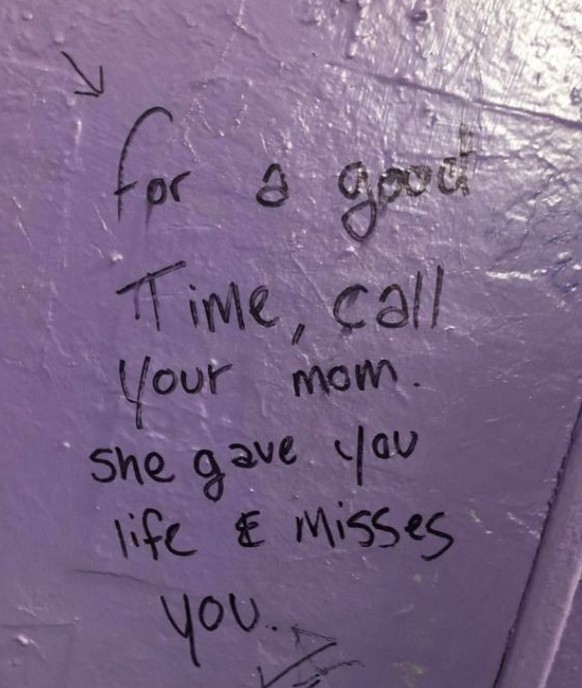 for a good
Time, call
your mom.
she gave you
life & misses
you.